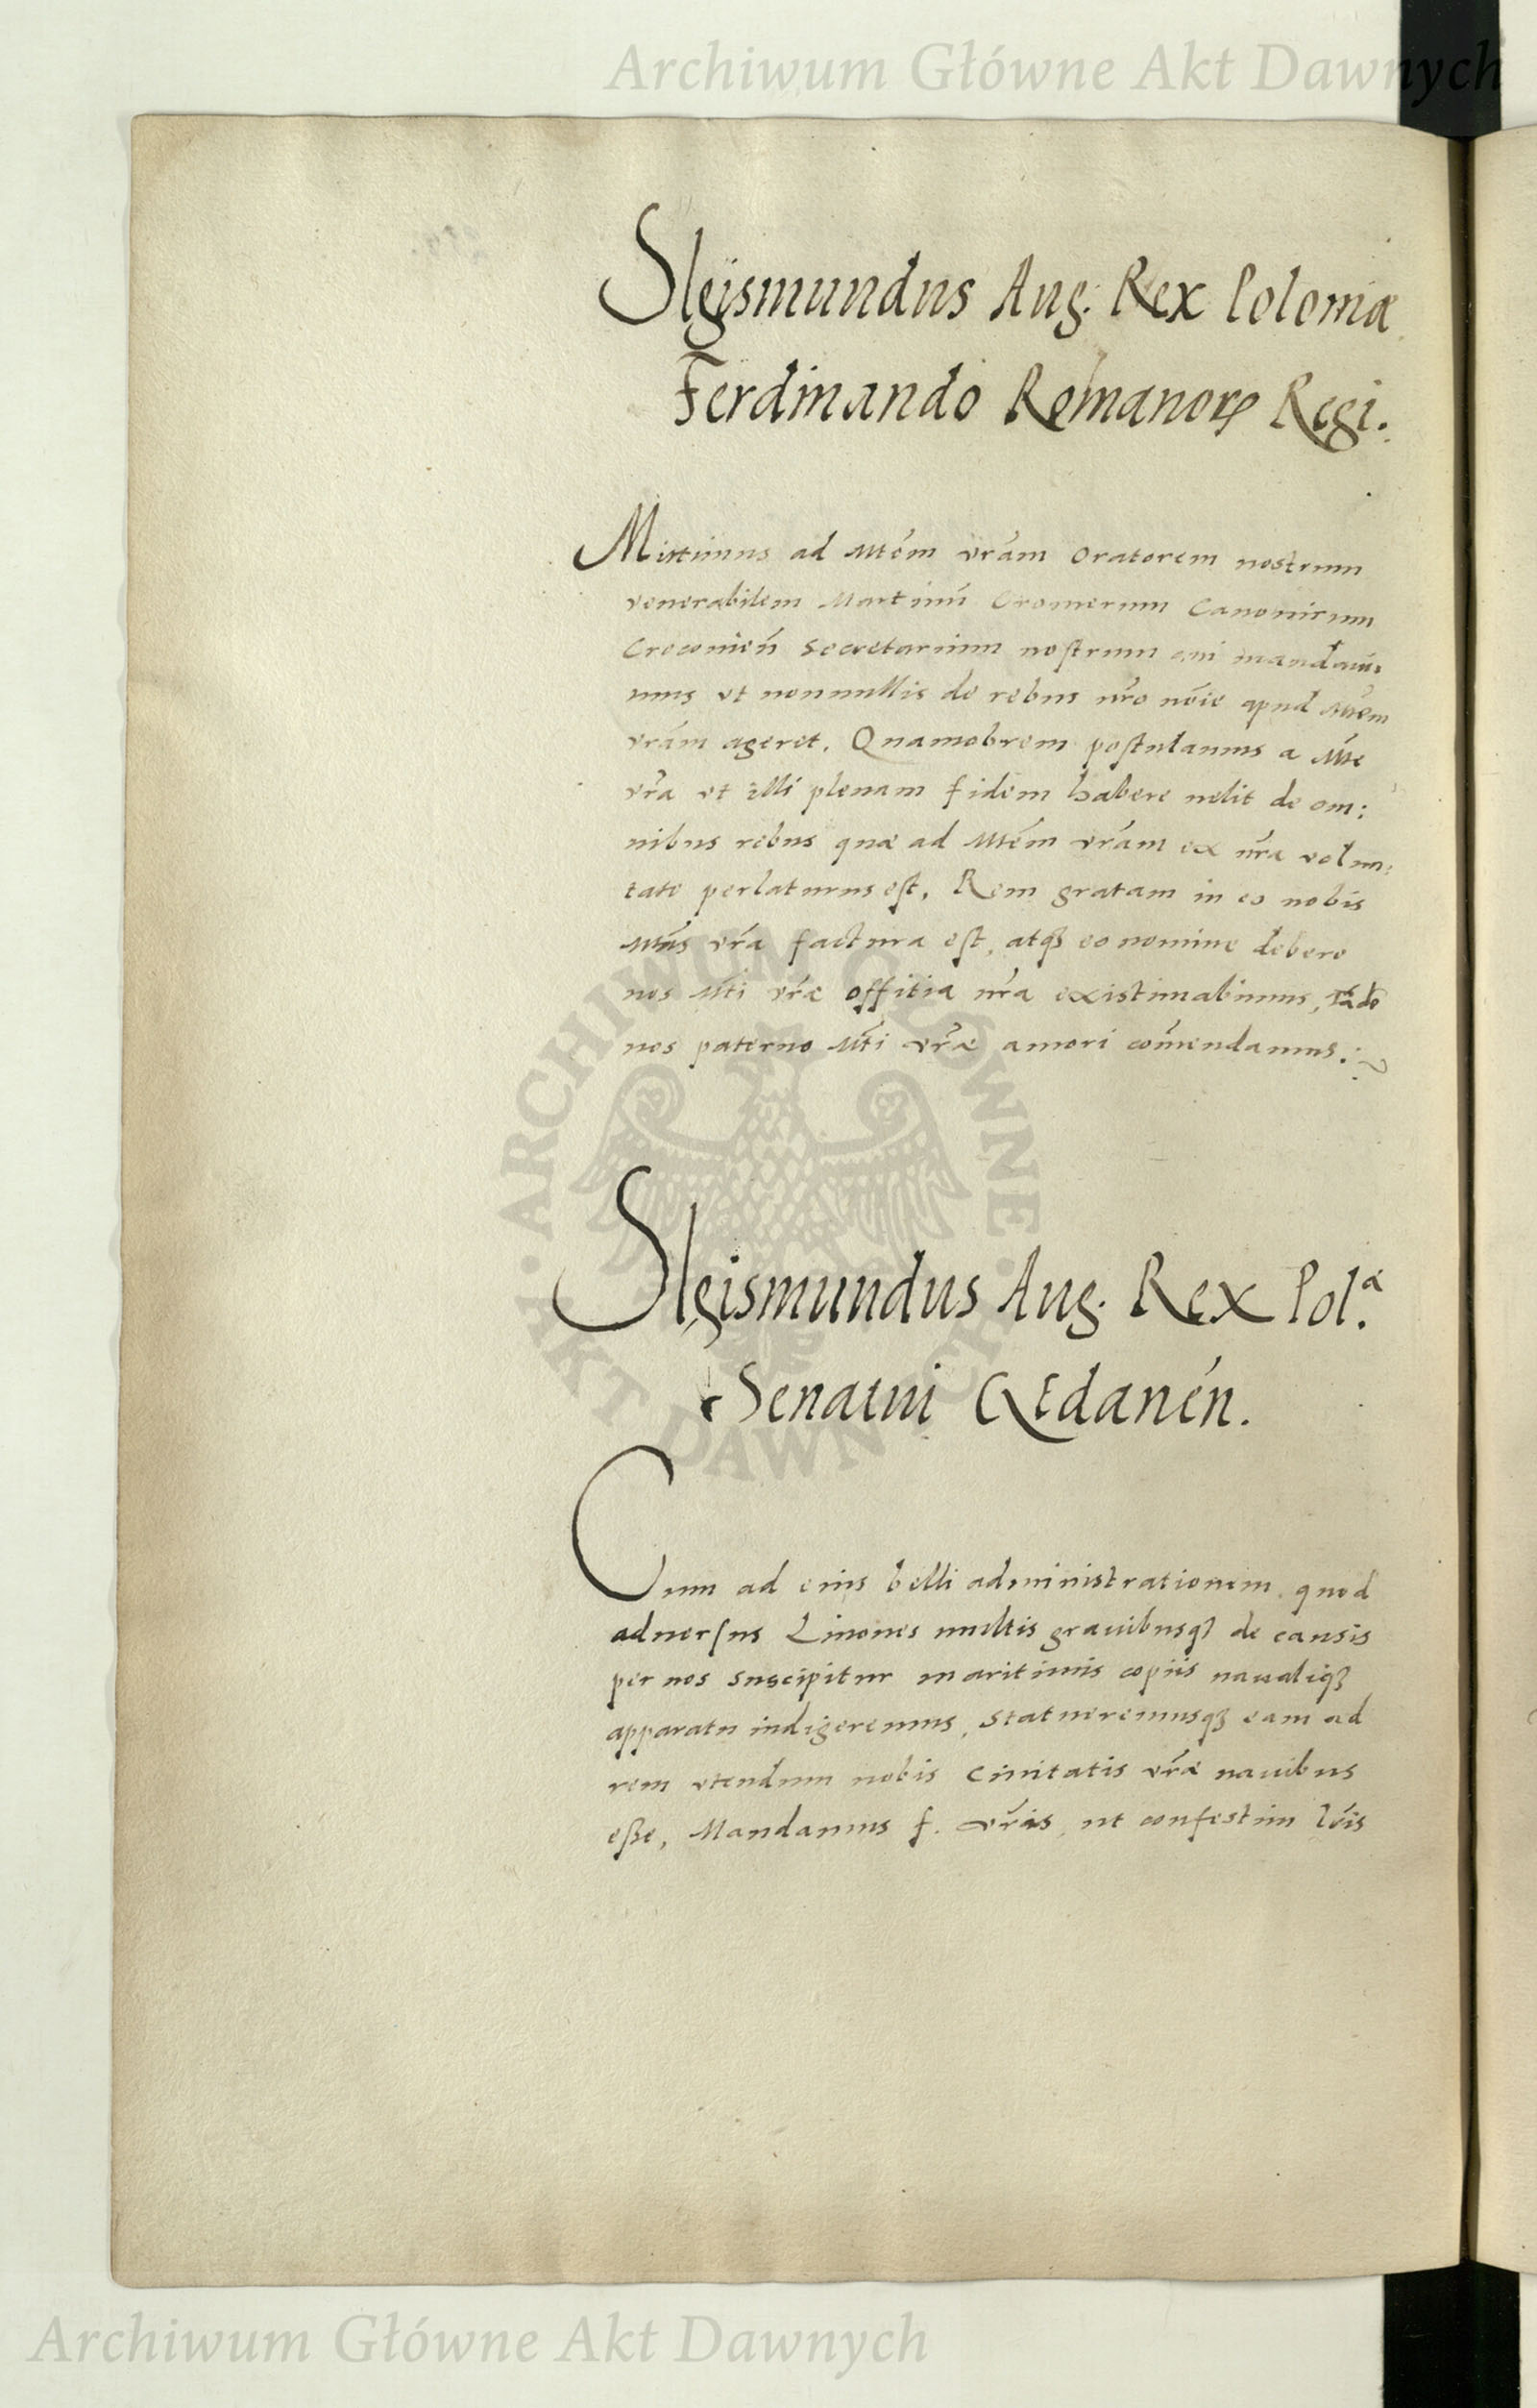 Archiwum Główne Akt Dawnych
SIgismundus Aug. Rex Poloniæ
Ferdinando Romanorꝝ Regi.
Mittimus ad Mtém vrám Oratorem nostrum
venerabilem Martinū Cromerum Canonicum
Cracouień Secretarium nostrum cui mandaui⸗
mus vt nonnullis de rebus nŕo nōie apud Mtém
vrám ageret. Quamobrem postulamus a Mte
vŕa vt illi plenam fidem habere uelit de om⸗
nibus rebus quæ ad Mtém vŕam ex nŕa volun⸗
tate perlaturus est. Rem gratam in eo nobis
Mtás vŕa factura est, atqꝫ eo nomine debere
nos Mti vŕæ offitia nŕa existimabimus,
nos paterno Mti vŕæ amori cōmendamus.
SIgismundus Aug. Rex Pol.æ
Senatui Gedanén.
Cum ad eius belli administrationem quod
aduersus Liuones multis grauibusqꝫ de causis
per nos suscipitur maritimis copiis naualiqꝫ
apparatu indigeremus, statueremusqꝫ eam ad
rem vtendum nobis Ciuitatis vŕæ nauibus
eße, Mandamus f. vŕis, ut confestim lŕis
ARCHIWUM GŁÓWNE AKT DAWNYCH
Archiwum Główne Akt Dawnych